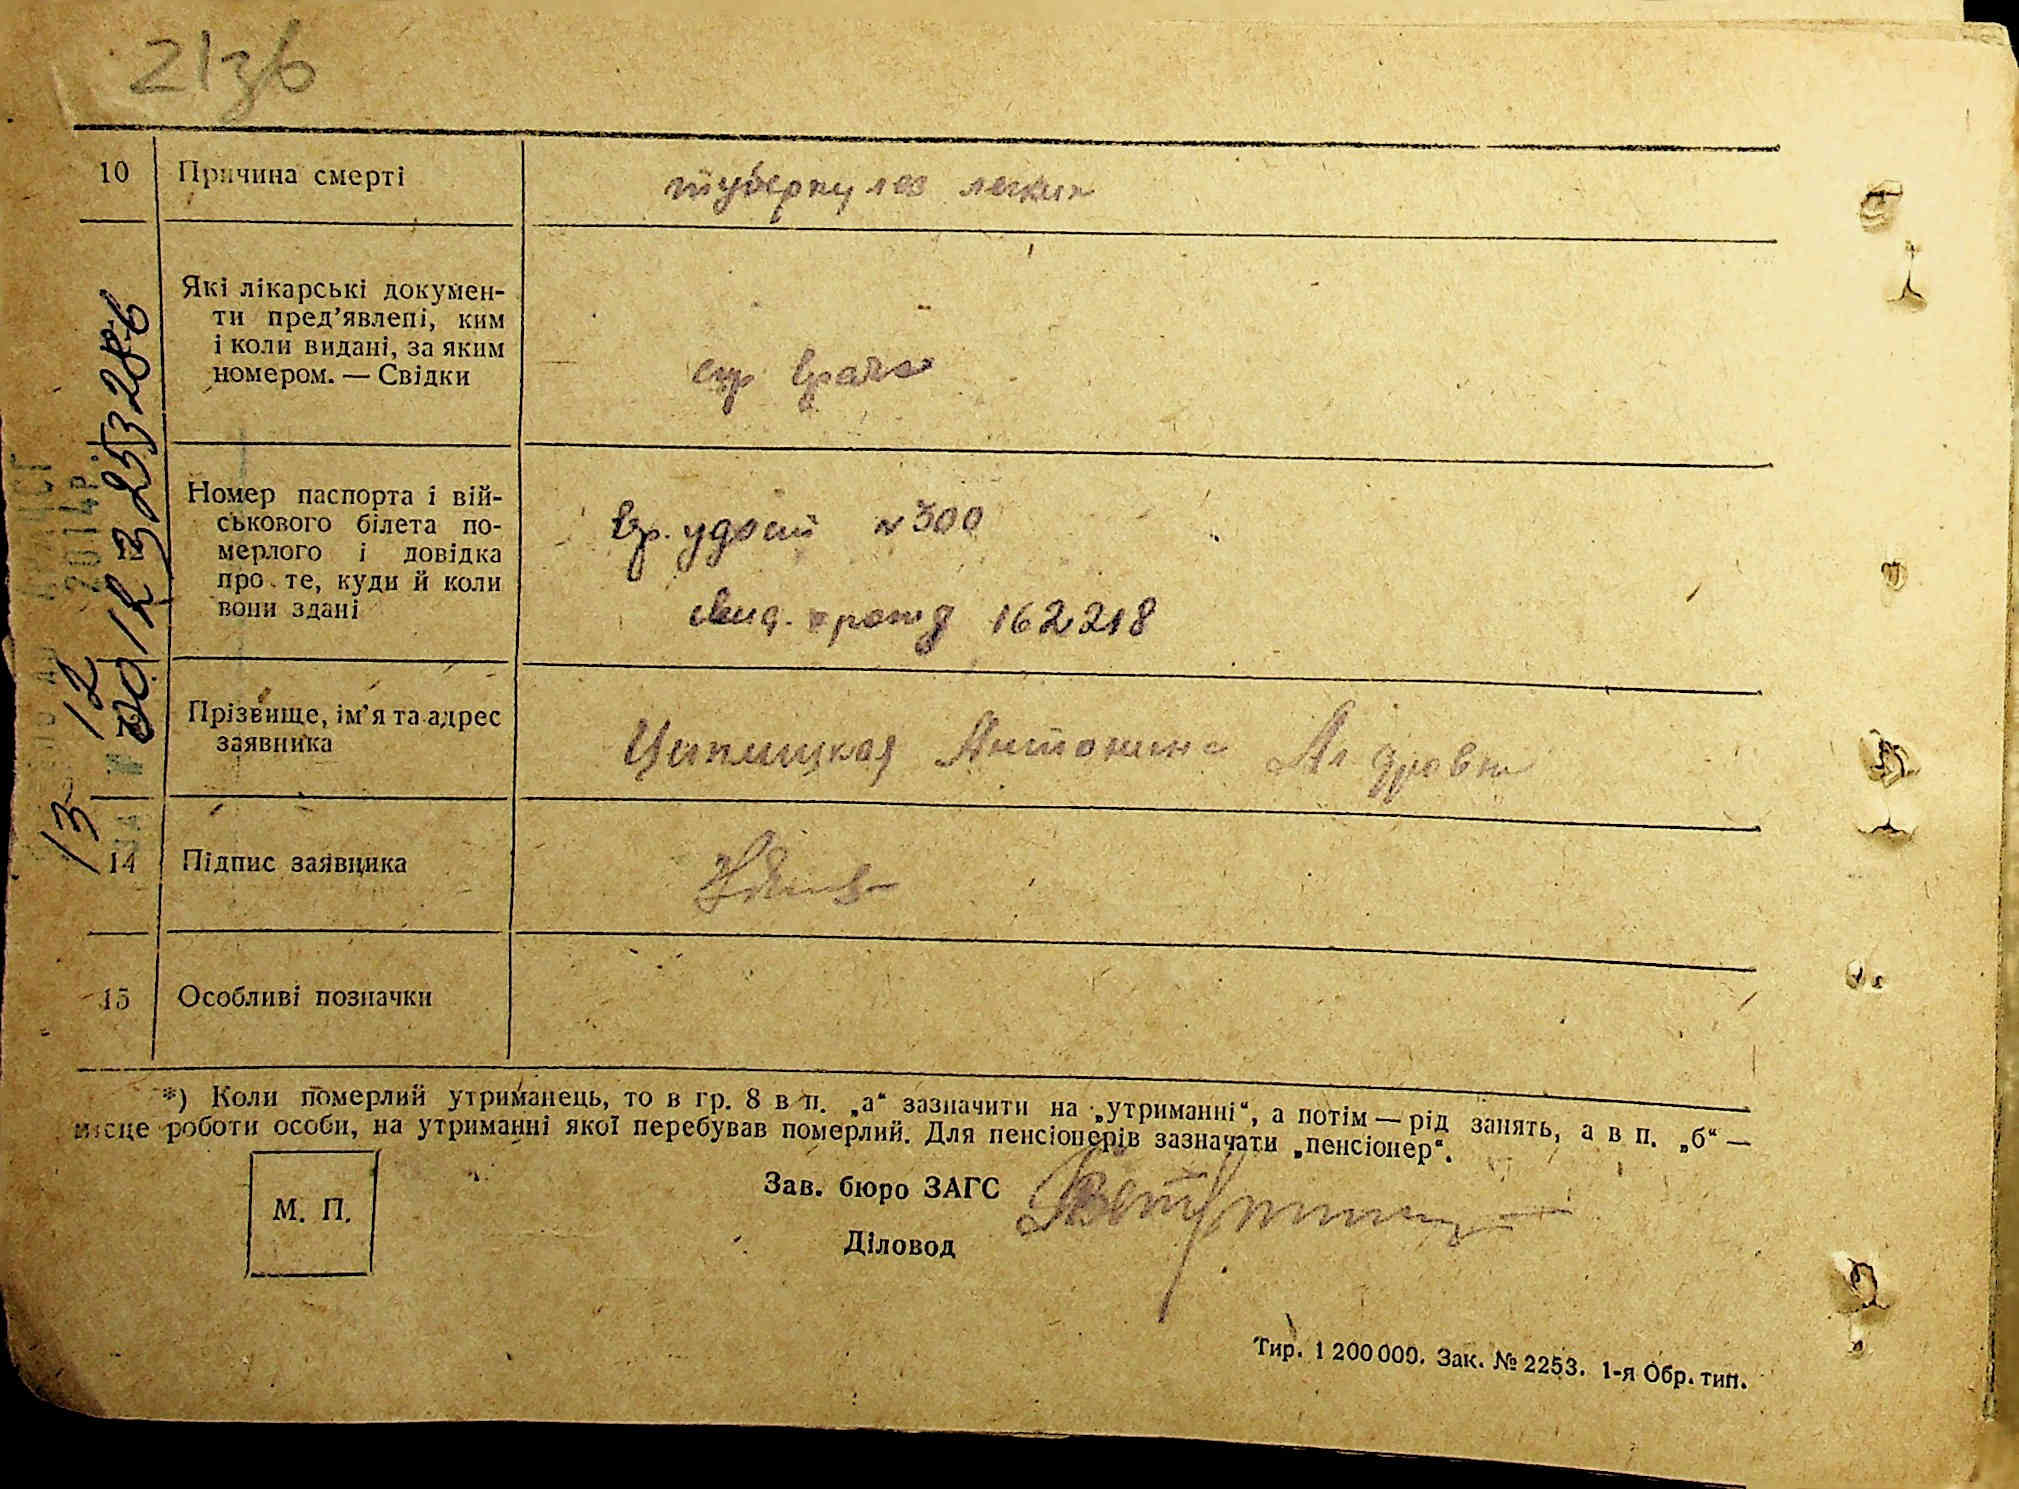 213б
10 Причина смерті туберкулез легких
Які лікарські докумен-
ти пред’явлені, ким
і коли видані, за яким
номером. — Свідки
спр врача
Номер паспорта і вій-
ськового білета по-
мерлого і довідка
про те, куди й коли
вони здані
вр. удост № 300
свид. о рожд 162218
Прізвище, ім’я та адрес
заявника
Антонина
14 Підпис заявника
15 Особливі позначки
*) Коли померлий утриманець, то в гр. 8 в п. „а“ зазначити на „утриманні“, а потім — рід занять, а в п. „б“ —
місце роботи особи, на утриманні якої перебував померлий. Для пенсіонерів зазначати „пенсіонер“.
М. П.
Зав. бюро ЗАГС
Діловод
Тир. 1 200 000. Зак. № 2253. 1-я Обр. тип.